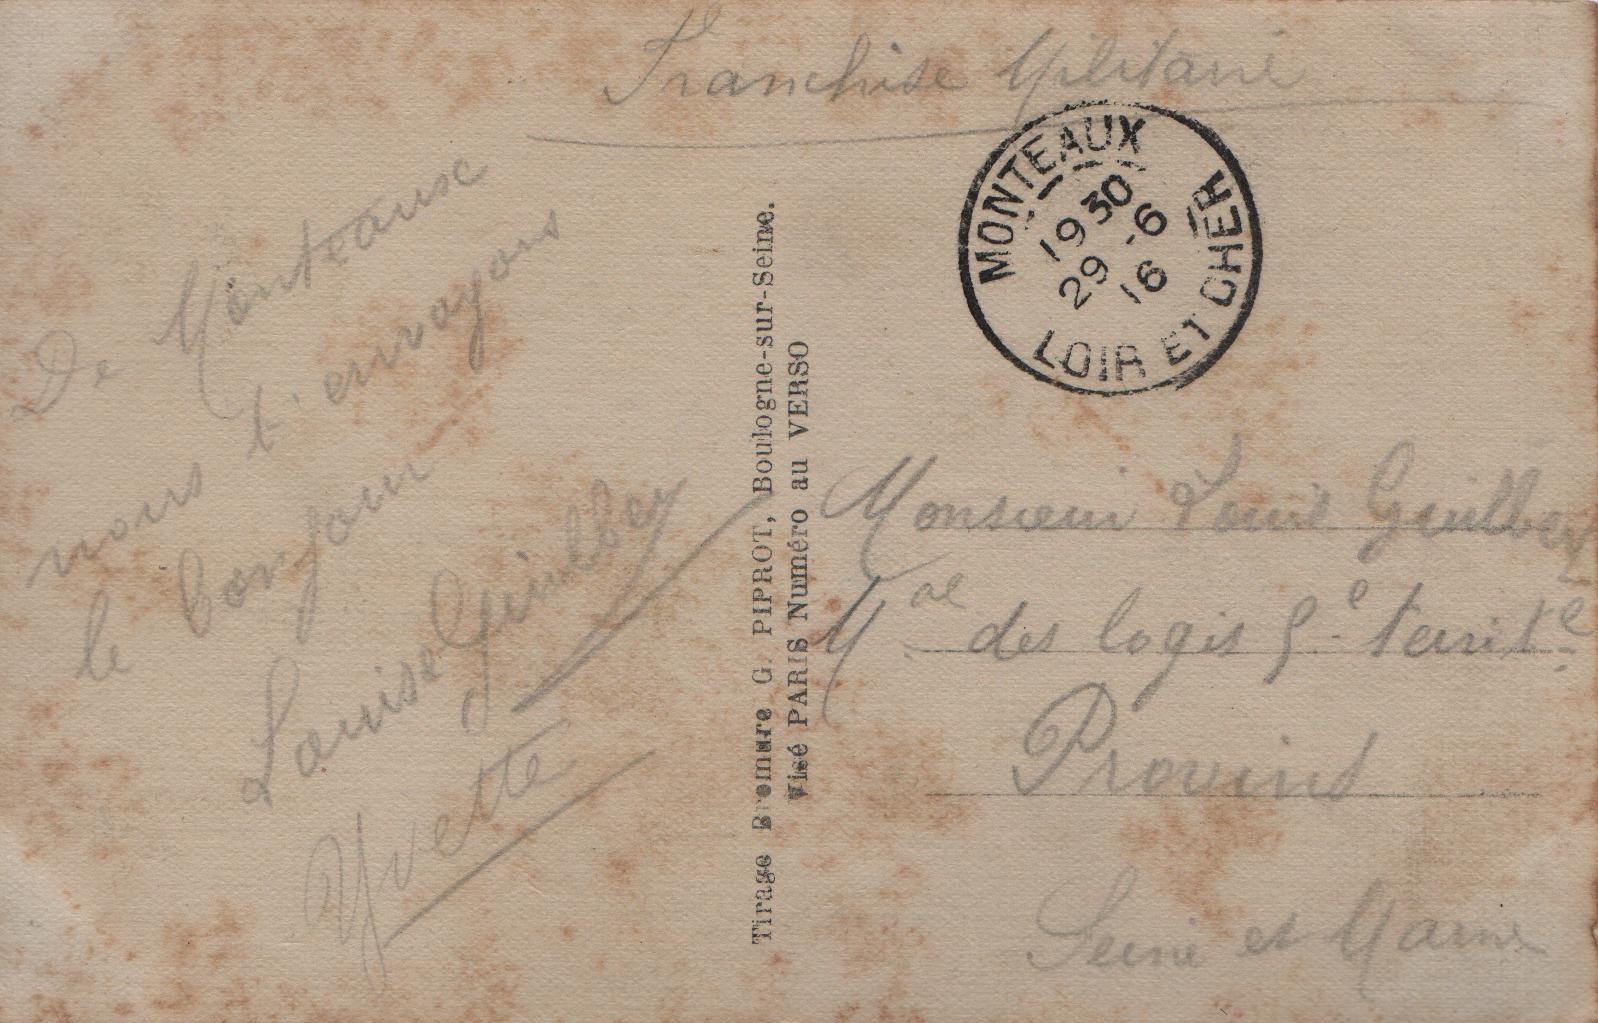 Franchise Militaire
MONTEAUX
1930
29 -6
16
LOIR ET CHER
De Monteaux
nous t'envoyons
le bonjour
Louise Guilbey
Yvette
Tirage Bromure G. PIPROT, Boulogne-sur-Seine.
Visé PARIS Numéro au VERSO
Monsieur
Mal des logis territle
Provins
Seine et Marne